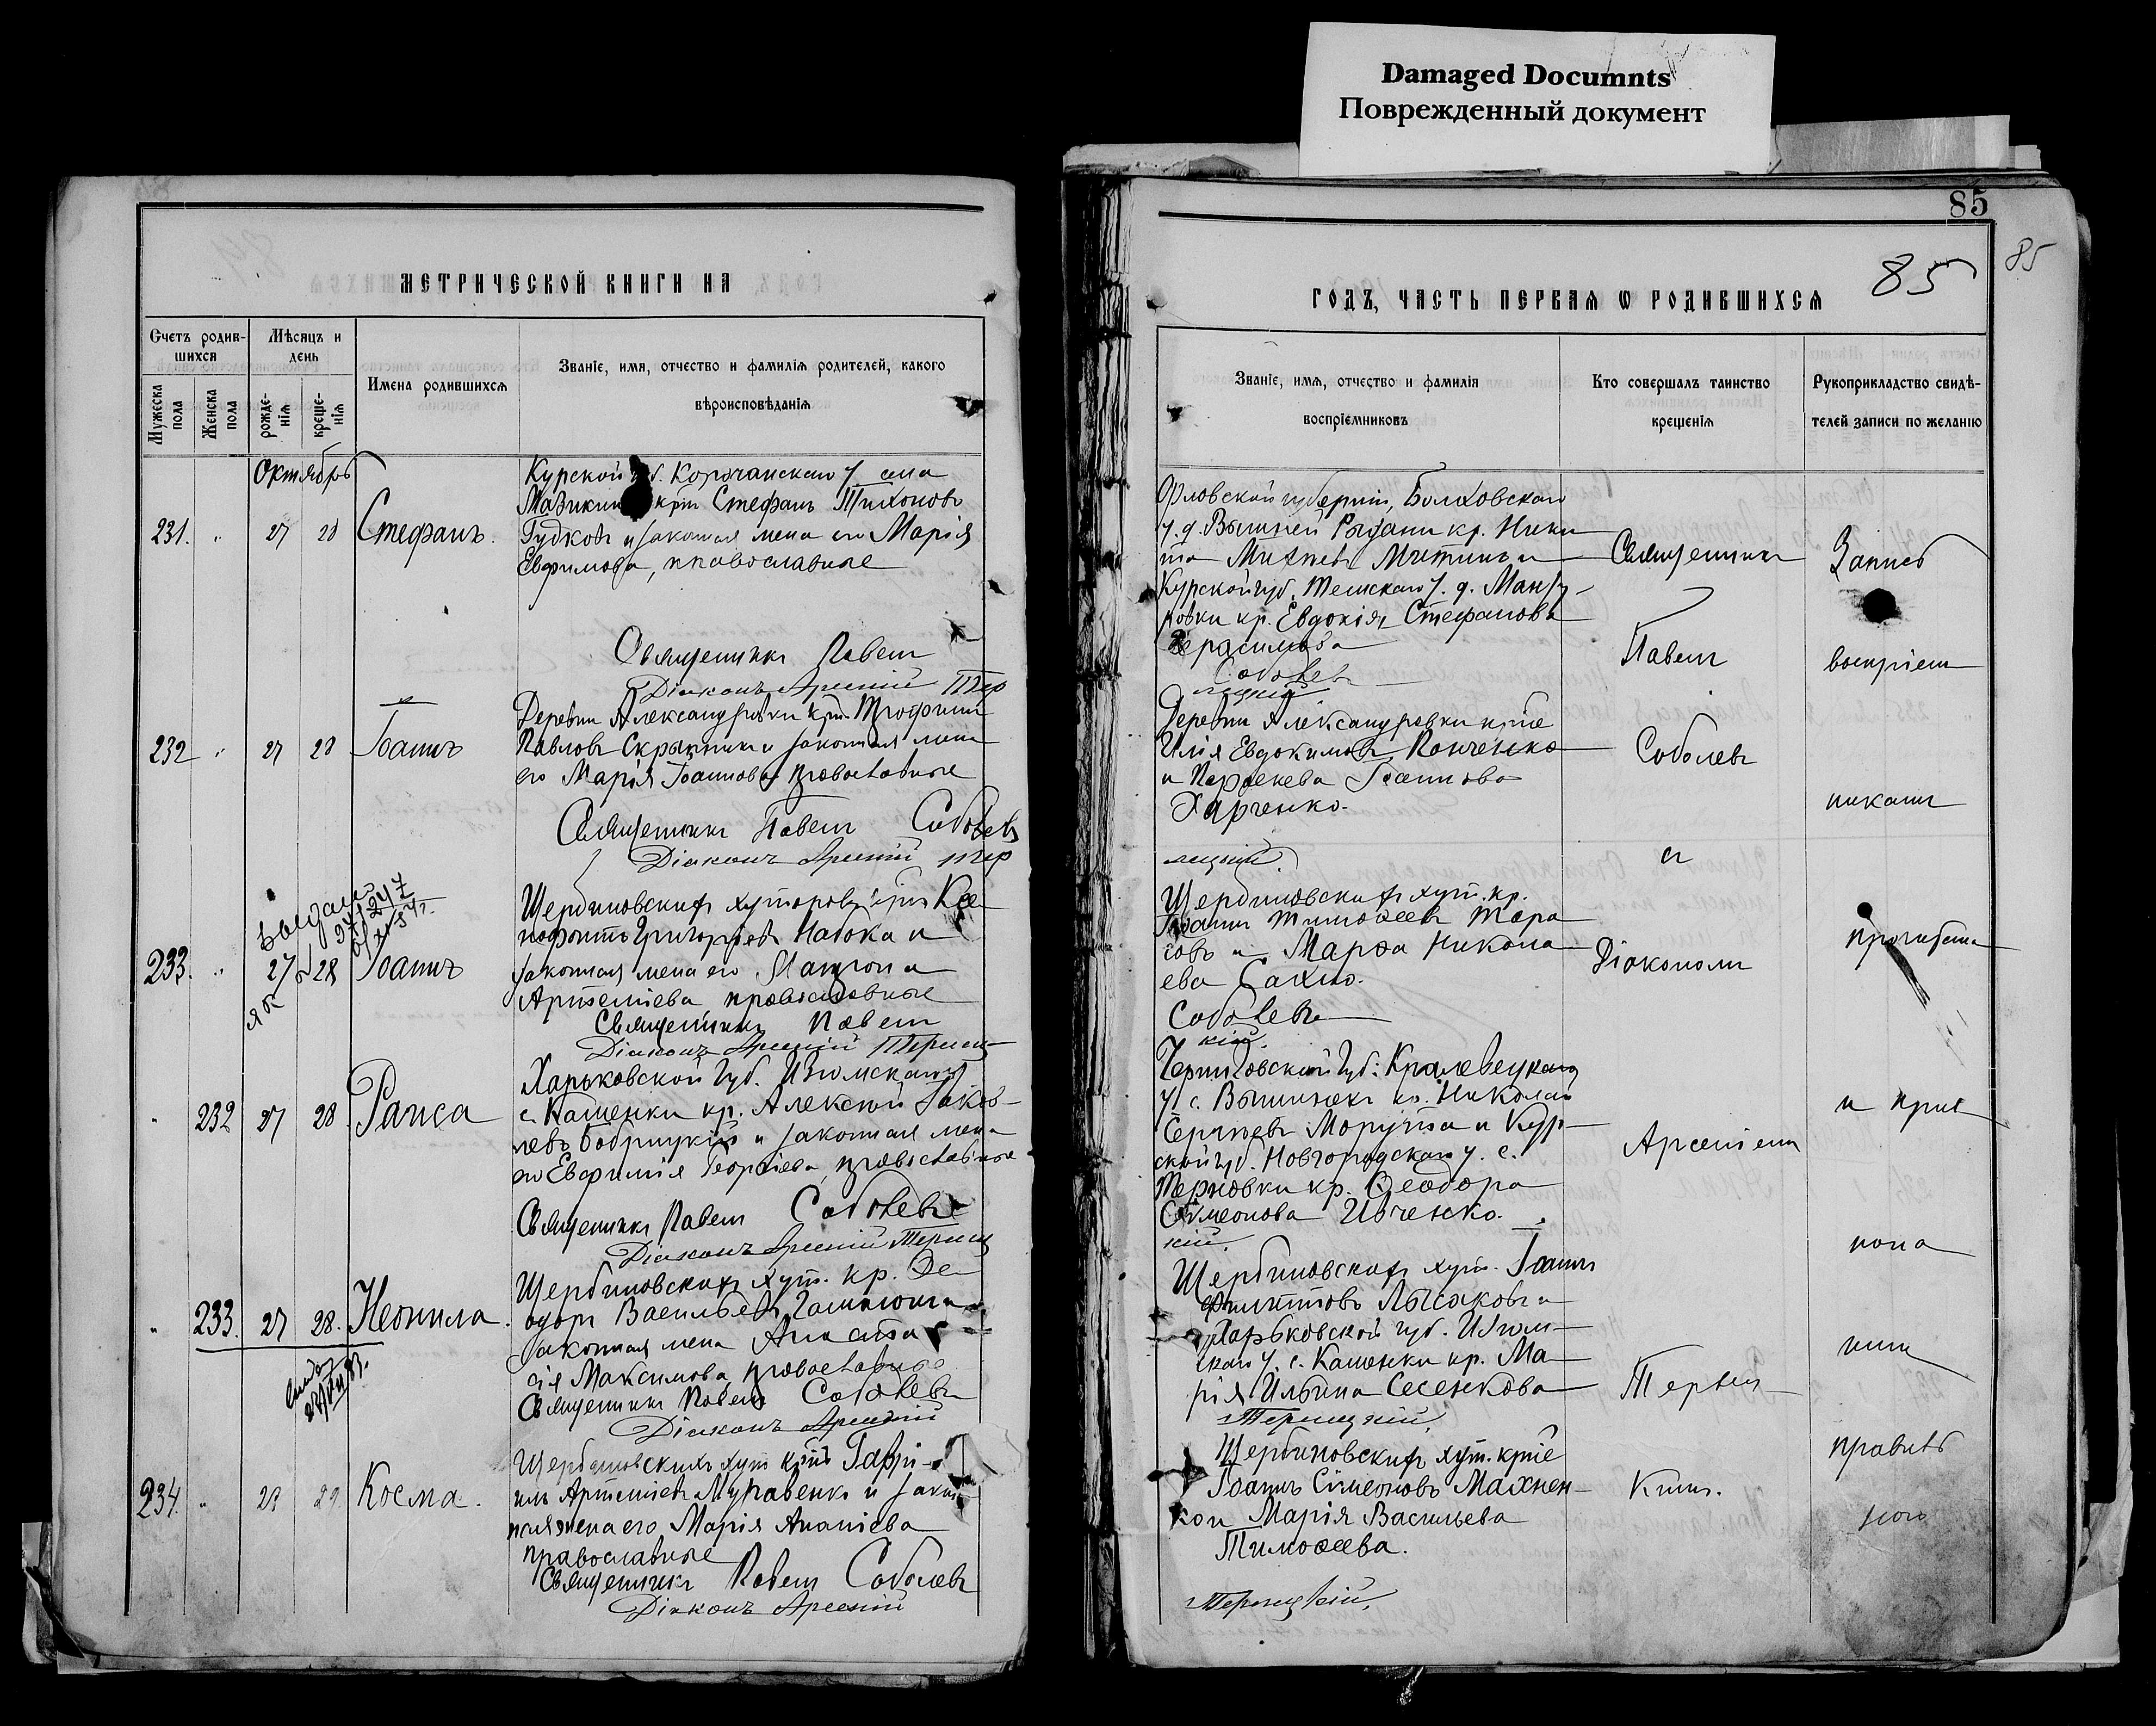 Damaged Documnts
Поврежденный документ
МЕТРИЧЕСКОЙ КНИГИ НА
Счетъ родив-
шихся
Мѣсяцъ и
день
Мужеска
пола
Женска
пола
рожде-
нія
креще-
нія
Имена родившихся
Званіе, имя, отчество и фамилія родителей, какого
вѣроисповѣданія
Октябрь
231. " 27 28 Стефанъ.
Курской губ. Корочанскаго у. села
крт Стефанъ Тихоновъ
Гудковъ и законная жена его Марія
Евфимова, православные
Священникъ Павелъ
Діаконъ Арсеній Тер
232 " 27 28 Іоаннъ
Деревни Александровки крт. Трофимъ
Павловъ Скрыпникъ и законная жена
его Марія Іоаннова православные
Священникъ Павелъ Соболевъ
Діаконъ Арсеній Тер
233. " 27 28 Іоаннъ
Щербиновскихъ хуторовъ крт Ксе
нофонтъ Григорьевъ Набока и
законная жена его Матрона
Артеміева православные
Священникъ Павелъ
Діаконъ Арсеній Терниц
" 232 27 28 Раиса
Харьковской Губ. Изюмскаго у
с. Каменки кр. Алексій Іаков-
левъ Бобрицкій и законная жена
его Евфимія Георгіева, православные
Священникъ Павелъ Соболевъ
Діаконъ Арсеній Терниц
" 233. 27 28. Неонила.
Щербиновскихъ хут. кр. Ѳе
одоръ Васильевъ и
законная жена Анаста
сія Максимова православные
Священникъ Павелъ Соболевъ
Діаконъ Арсеній
234. " 29 Косма.
Щербиновскихъ хут крт Гаврі-
илъ Артеміевъ Муравенко и закон
ная жена его Марія Ананіева
православные
Священникъ Павелъ Соболевъ
Діаконъ Арсеній
85
85
85
ГОДЪ, ЧАСТЬ ПЕРВАЯ Ѡ РОДИВШИХСЯ
Званіе, имя, отчество и фамилія
воспріемниковъ
Кто совершалъ таинство
крещенія
Рукоприкладство свидѣ-
телей записи по желанію
Орловской губерніи, Болховскаго
у. д. Вышней кр. Ники
та Митинъ и
Курской губ. Тимскаго у. д. Манту
ровки кр. Евдокія Стефанова
Герасимова
Соболевъ
ницкій
Деревни Александровки крте
Илія Евдокимовъ Панченко
и Параскева Іоаннова
Харченко.
ницкій.
Щербиновскихъ хут. кр.
Іоаннъ Тимоѳеевъ Тара
совъ и Марѳа Никола
ева Сахно.
Соболевъ
кій.
Черниговской Губ. Кролевецкаго
у. с. кр. Николай
Сергѣевъ и Кур
ской губ. Новгородскаго у. с.
Терновки кр. Ѳеодора
Симеонова Ивченко.
кій.
Щербиновскихъ хут. Іоаннъ
Филипповъ Лысаковъ и
Харьковской губ. Изюм-
скаго у. с. Каменки кр. Ма-
рія Ильина Сесенкова
Терницкій.
Щербиновскихъ хут. крте
Іоаннъ Симеоновъ Махнен-
ко и Марія Васильева
Тимоѳеева.
Терницкій.
Священникъ
Павелъ
Соболевъ
съ
Діакономъ
Арсеніемъ
Терниц
кимъ.
Запись
воспріем
никами
и прик
правиль
ного